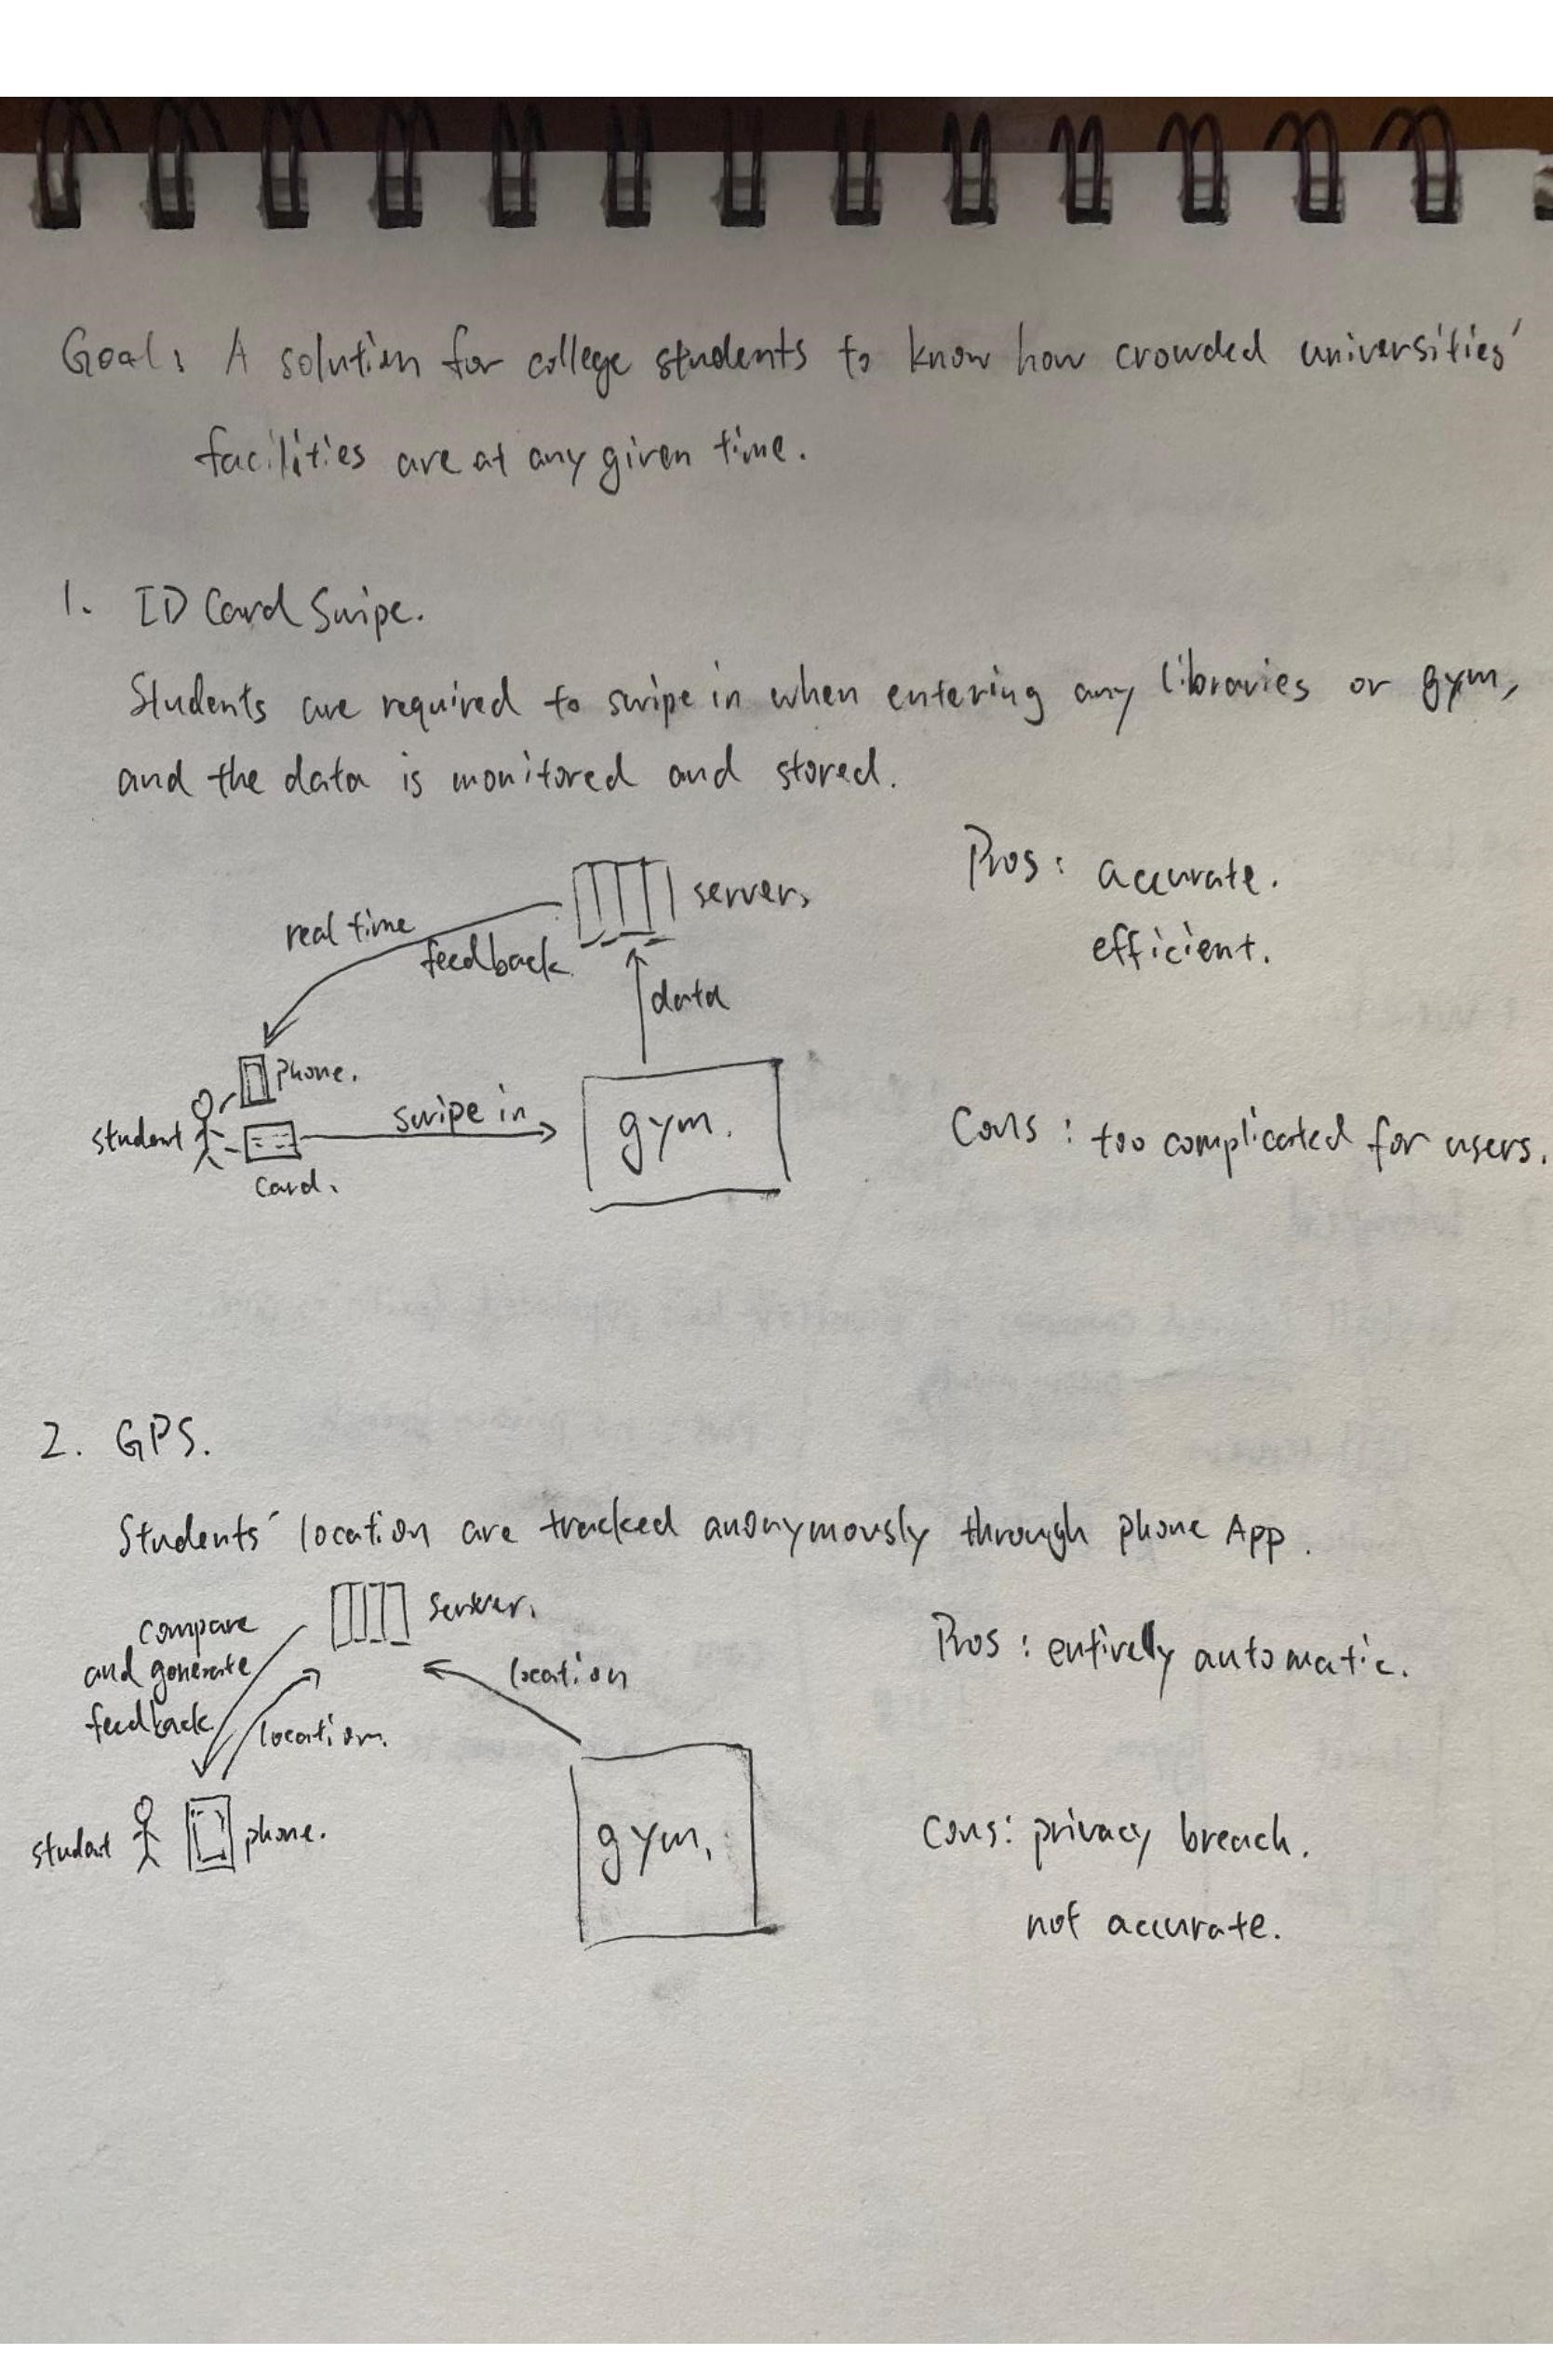 Goal: A solution for college students to know how crowded universities'
facilities are at any given time.
1. ID Card Swipe.
Students are required to swipe in when entering any libraries or gym,
and the data is monitored and stored.
servers
real time
feedback
data
phone.
student
card.
swipe in
gym.
Pros: accurate.
efficient.
Cons: too complicated for users.
2. GPS.
Students' location are tracked anonymously through phone App.
server.
compare
and generate
feedback
location.
location
student
phone.
gym.
Pros: entirely automatic.
Cons: privacy breach.
not accurate.